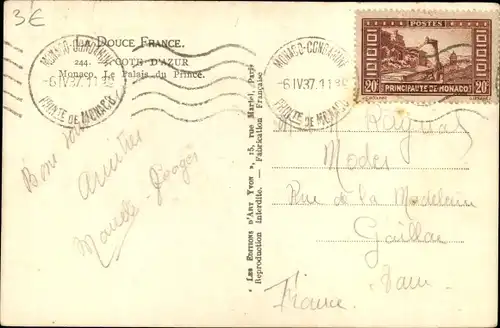 3€
La DOUCE FRANCE.
244. - COTE D'AZUR
Monaco. Le Palais du Prince.
MONACO-CONDAMINE
-6 IV 37. 11
PRINCIPAUTE DE MONACO
MONACO-CONDAMINE
-6 IV 37. 11
PRINCIPAUTE DE MONACO
POSTES
20c 20c
PRINCIPAUTÉ DE MONACO
Bons
Amitiés
Marcelle - Georges
" LES EDITIONS D'ART YVON ", 15, rue Martel, Paris
Reproduction interdite. — Fabrication Française
Modes
Rue de la Madeleine
Gaillac
Tarn
France